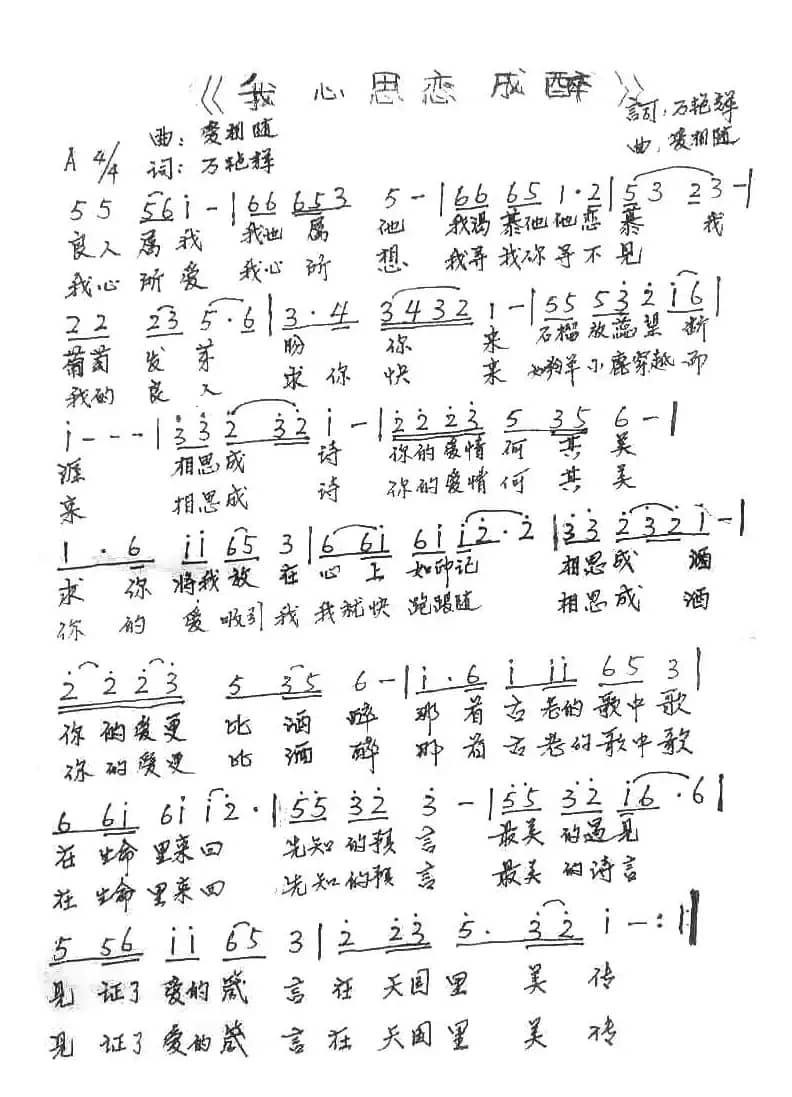 《我心思恋成醉》
詞，万艳辉
曲：爱相随 曲，爱相随
A 4/4 词：万艳辉
5 5 56 i - | 66 653 5 - | 66 65 1·2 | 53 23 - |
良人属我 我也属他 我渴慕他他恋慕我
我心所爱 我心所想 我寻我你寻不见
22 23 5·6 | 3·4 3432 1 - | 55 532 i6 |
葡萄发芽 盼你来 石榴放蕊望断
我的良人 求你快来 如狗羊小鹿穿越而
i - - - | 33 2 32 i - | 2223 5 35 6 - |
涯 相思成诗 你的爱情何其美
来 相思成诗 你的爱情何其美
1·6 ii 65 3 | 6 6i 6i i2·2 | 33 232 i - |
求你将我放在心上如印记 相思成酒
你的爱吸引我我就快跑跟随 相思成酒
2223 5 35 6 - | i·6 i ii 65 3 |
你的爱更比酒醉 那首古老的歌中歌
你的爱更比酒醉 那首古老的歌中歌
6 6i 6i i2· | 55 32 3 - | 55 32 i6·6 |
在生命里来回 先知的预言 最美的遇见
在生命里来回 先知的预言 最美的诗言
5 56 ii 65 3 | 2 23 5· 32 i - :||
见证了爱的箴言在天国里美传
见证了爱的箴言在天国里美传